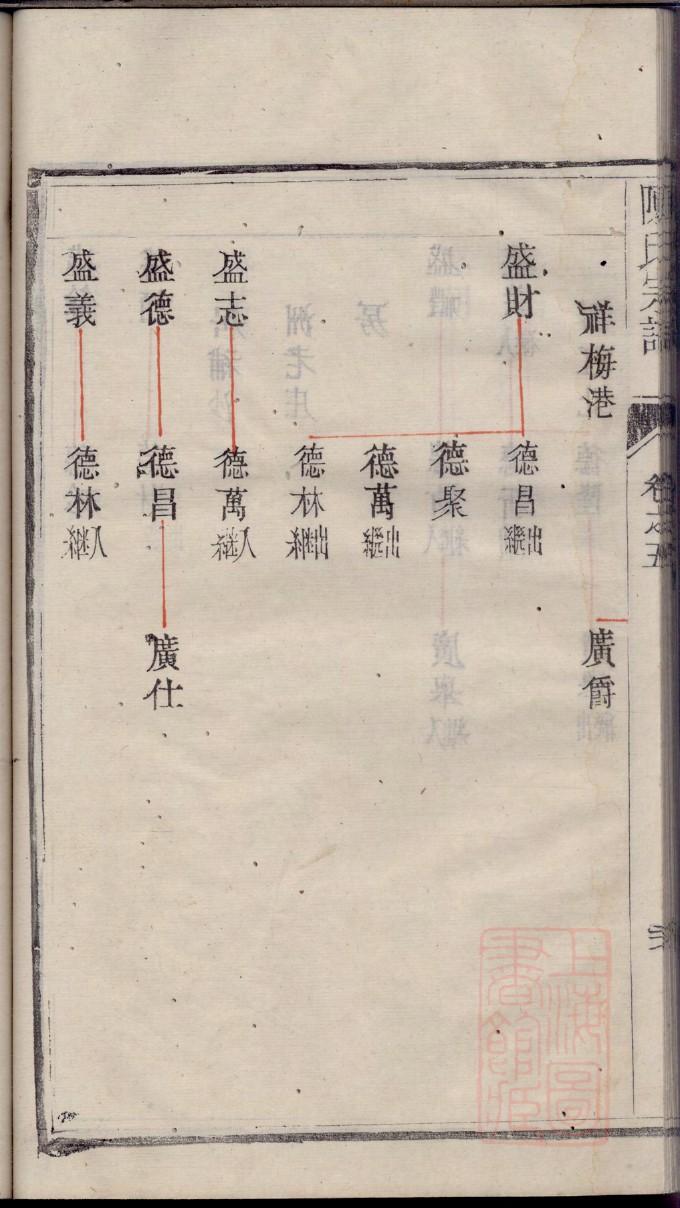 陳氏宗譜
卷之五
祥梅港
廣爵
盛財
德昌出繼
德聚
德萬出繼
德林出繼
盛志
德萬入繼
盛德
德昌
廣仕
盛義
德林入繼
上海圖
書館藏